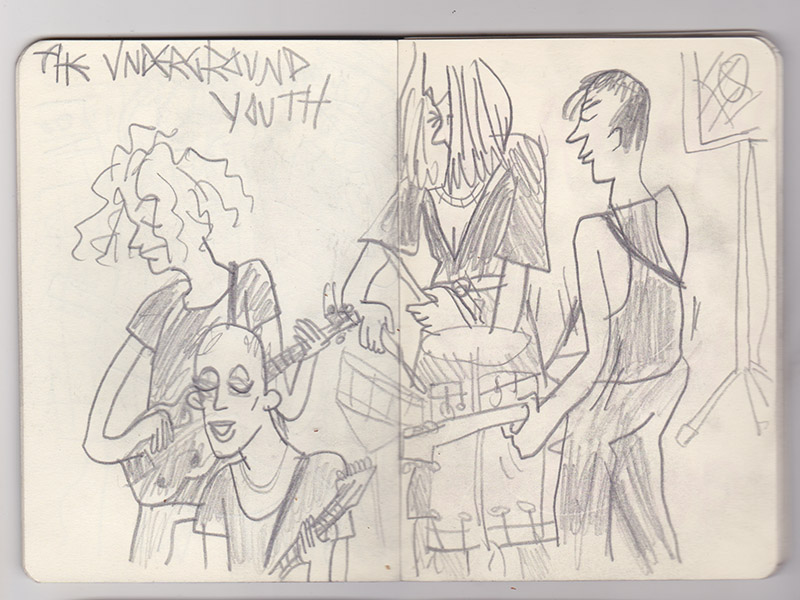 THE UNDERGROUND
YOUTH